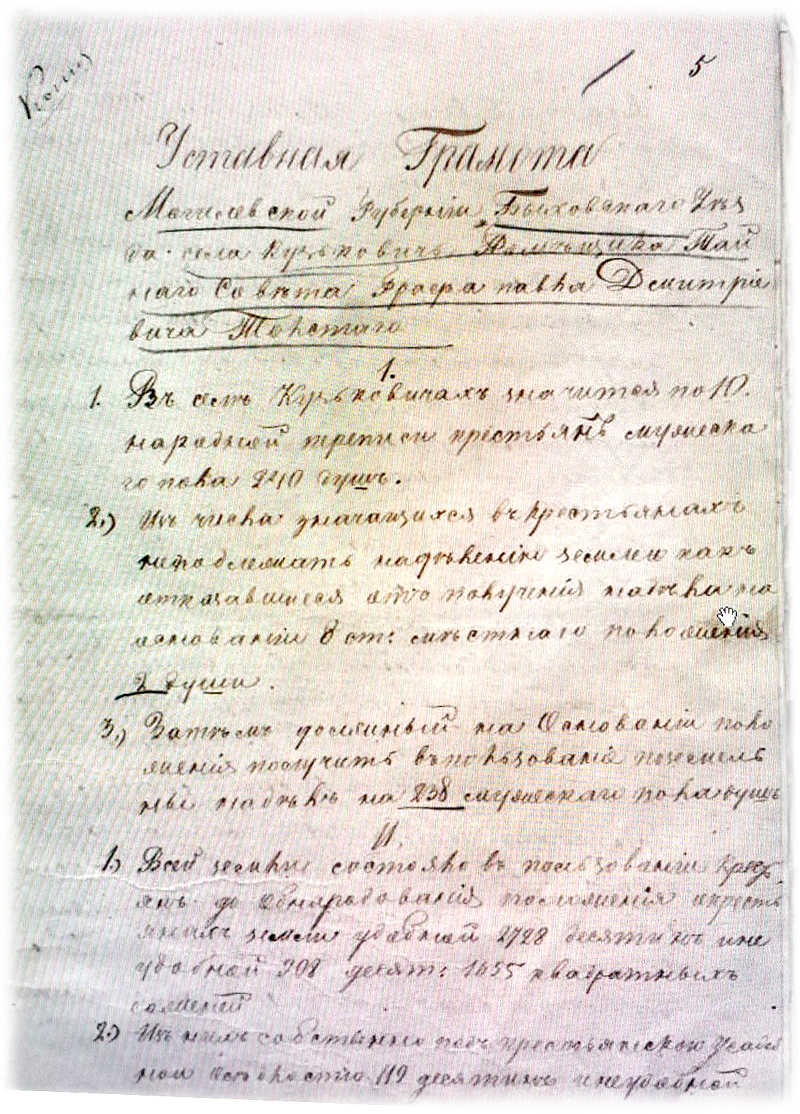 Копия
5
Уставная Грамота
Могилевской Губерніи, Быховскаго Уѣз
да. села Кузьковичъ Помѣщика Тай
наго Совѣта Графа павла Дмитріе
вича Толстаго
1.
1. Въ селѣ Кузьковичахъ значится по 10.
народной переписи крестьянъ мужеска
го пола 240 душъ.
2.) Изъ числа значащихся въ крестьянахъ
неподлежатъ надѣленію землею какъ
отказавшіеся отъ полученія надѣла на
основаніи 8 ст: мѣстнаго положенія
2 души.
3.) Затѣмъ должный на Основаніи поло
женія получить въ пользованіе поземель
ный надѣлъ на 238 мужескаго пола душъ
II.
1.) Всей земли состояло въ пользованіи крест
янъ до Обнародованія положенія о крестъ
янахъ земли удобной 2728 десятинъ и не
удобной 308 десят: 1655 квадратныхъ
саженей
2.) Изъ нихъ собственно подъ крестьянскою Усадеб
ной Осѣдлостію 112 десятинъ и неудобной